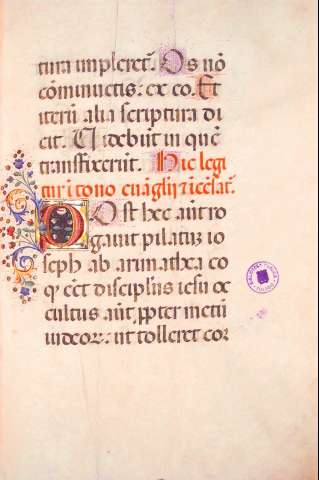 tura impleret᷑. Os nō
cōminuetis. ex eo. Et
iterū alia scriptura di
cit. Uidebūt in quē
transfixerūt. Hic legi
tur ī tono euāgl̄ij ⁊ icēsat᷑.
Post hec aūt ro
gauit pilatuꝫ io
seph ab arimathea eo
qꝫ eēt discipl̄us iesu oc
cultus aūt. ꝓpter metū
iudeoꝝ: ut tolleret cor